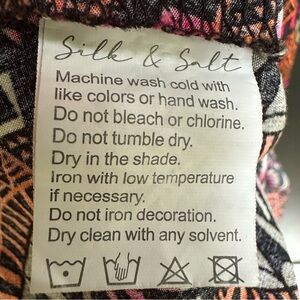 Silk & Salt
Machine wash cold with
like colors or hand wash.
Do not bleach or chlorine.
Do not tumble dry.
Dry in the shade.
Iron with low temperature
if necessary.
Do not iron decoration.
Dry clean with any solvent.